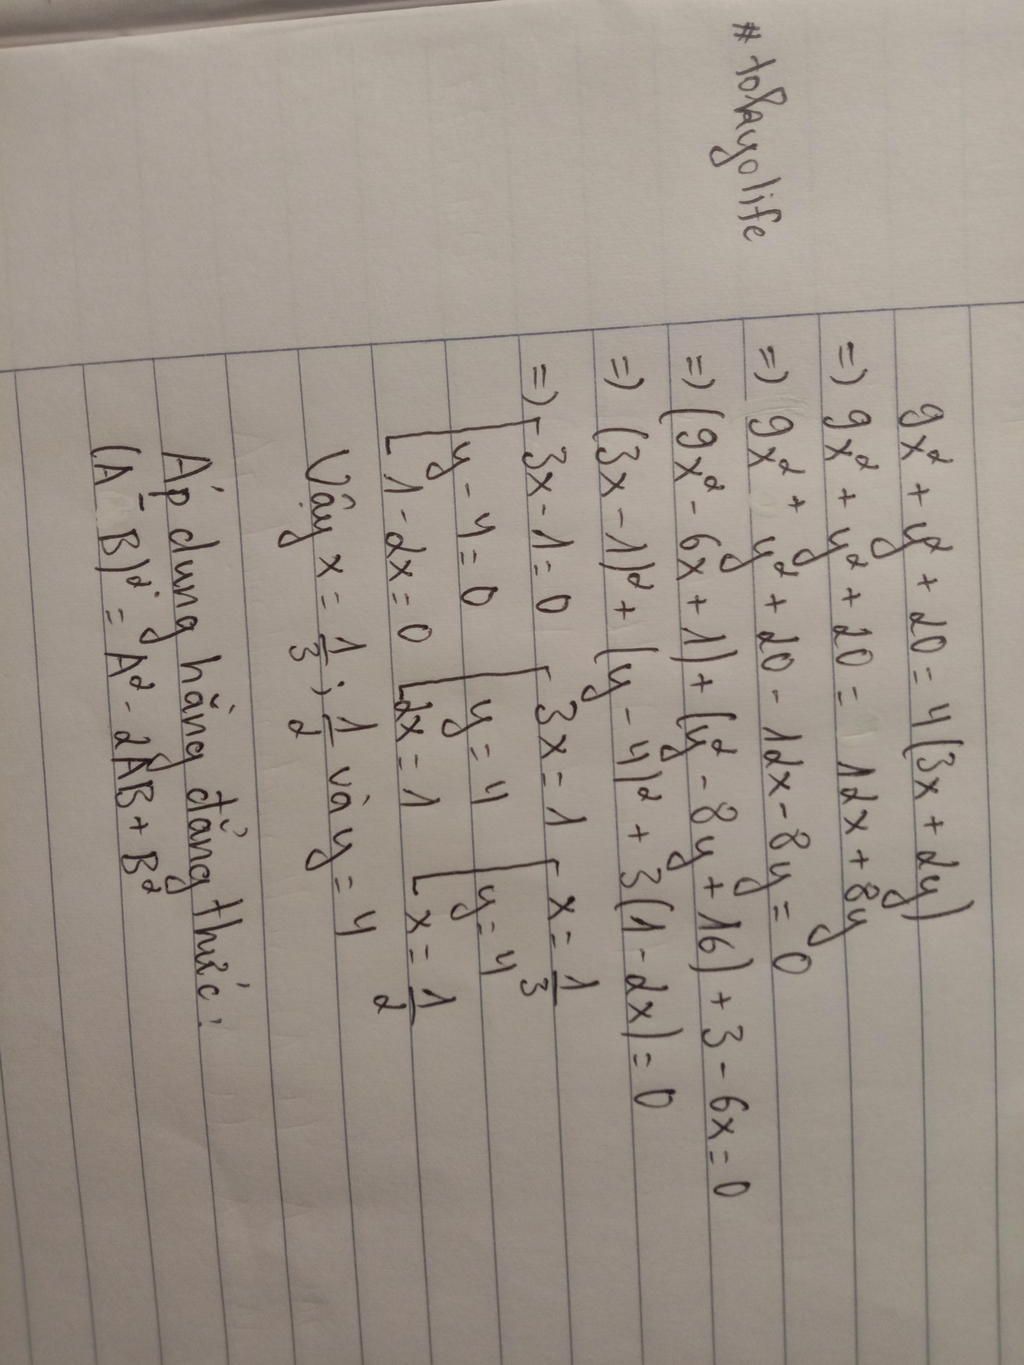 #toPayolife
9x² + y² + 20 = 4(3x + 2y)
=) 9x² + y² + 20 = 12x + 8y
=) 9x² + y² + 20 - 12x - 8y = 0
=) (9x² - 6x + 1) + (y² - 8y + 16) + 3 - 6x = 0
=) (3x - 1)² + (y - 4)² + 3(1 - 2x) = 0
=) [3x - 1 = 0 [3x = 1 [x = 1/3
y - 4 = 0 y = 4 y = 4
1 - 2x = 0 2x = 1 x = 1/2
Vậy x = 1/3 ; 1/2 và y = 4
Áp dụng hằng đẳng thức :
(A - B)² = A² - 2AB + B²